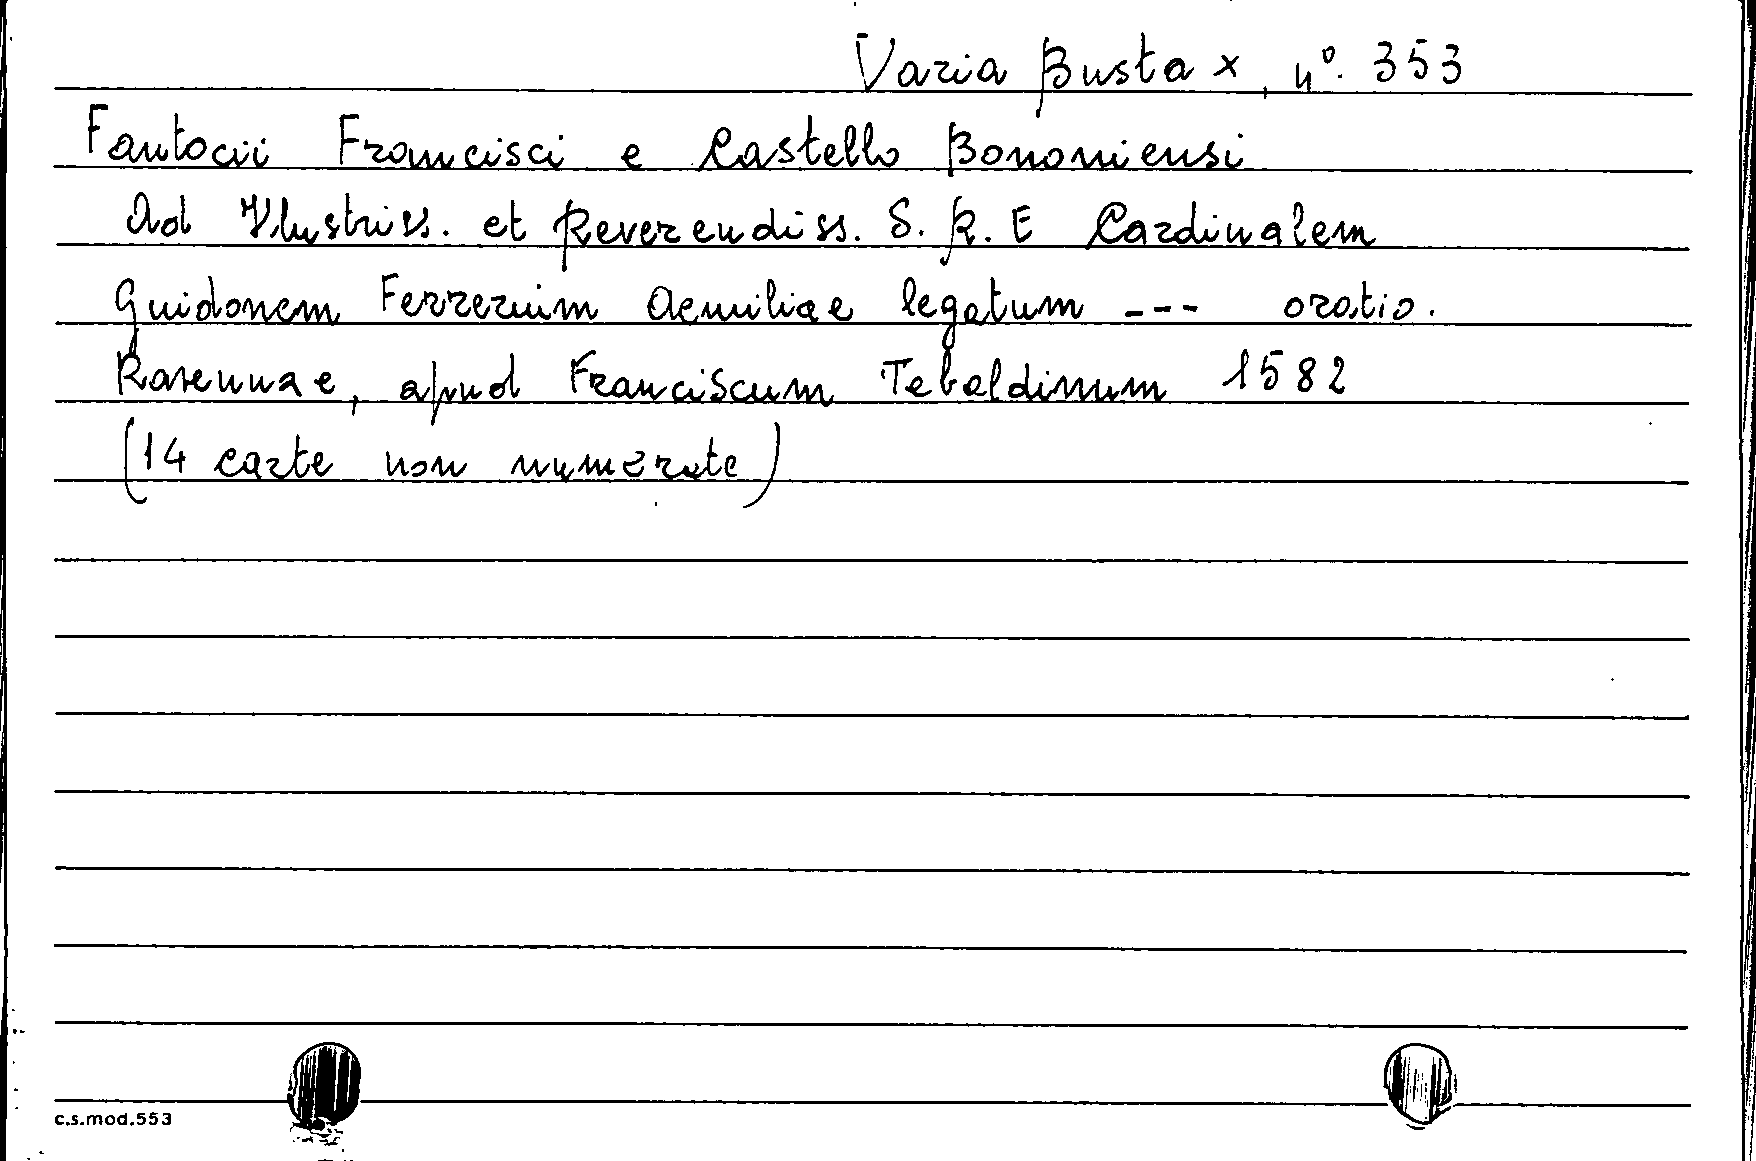 Varia Busta X, nº. 353
Fantocii Francisci e Castello Bononiensi
Ad Illustriss. et Reverendiss. S. R. E Cardinalem
Guidonem Ferrerium Aemiliae legatum --- oratio.
Ravennae, apud Franciscum Tebaldinum 1582
(14 carte non numerate)
c.s.mod.553